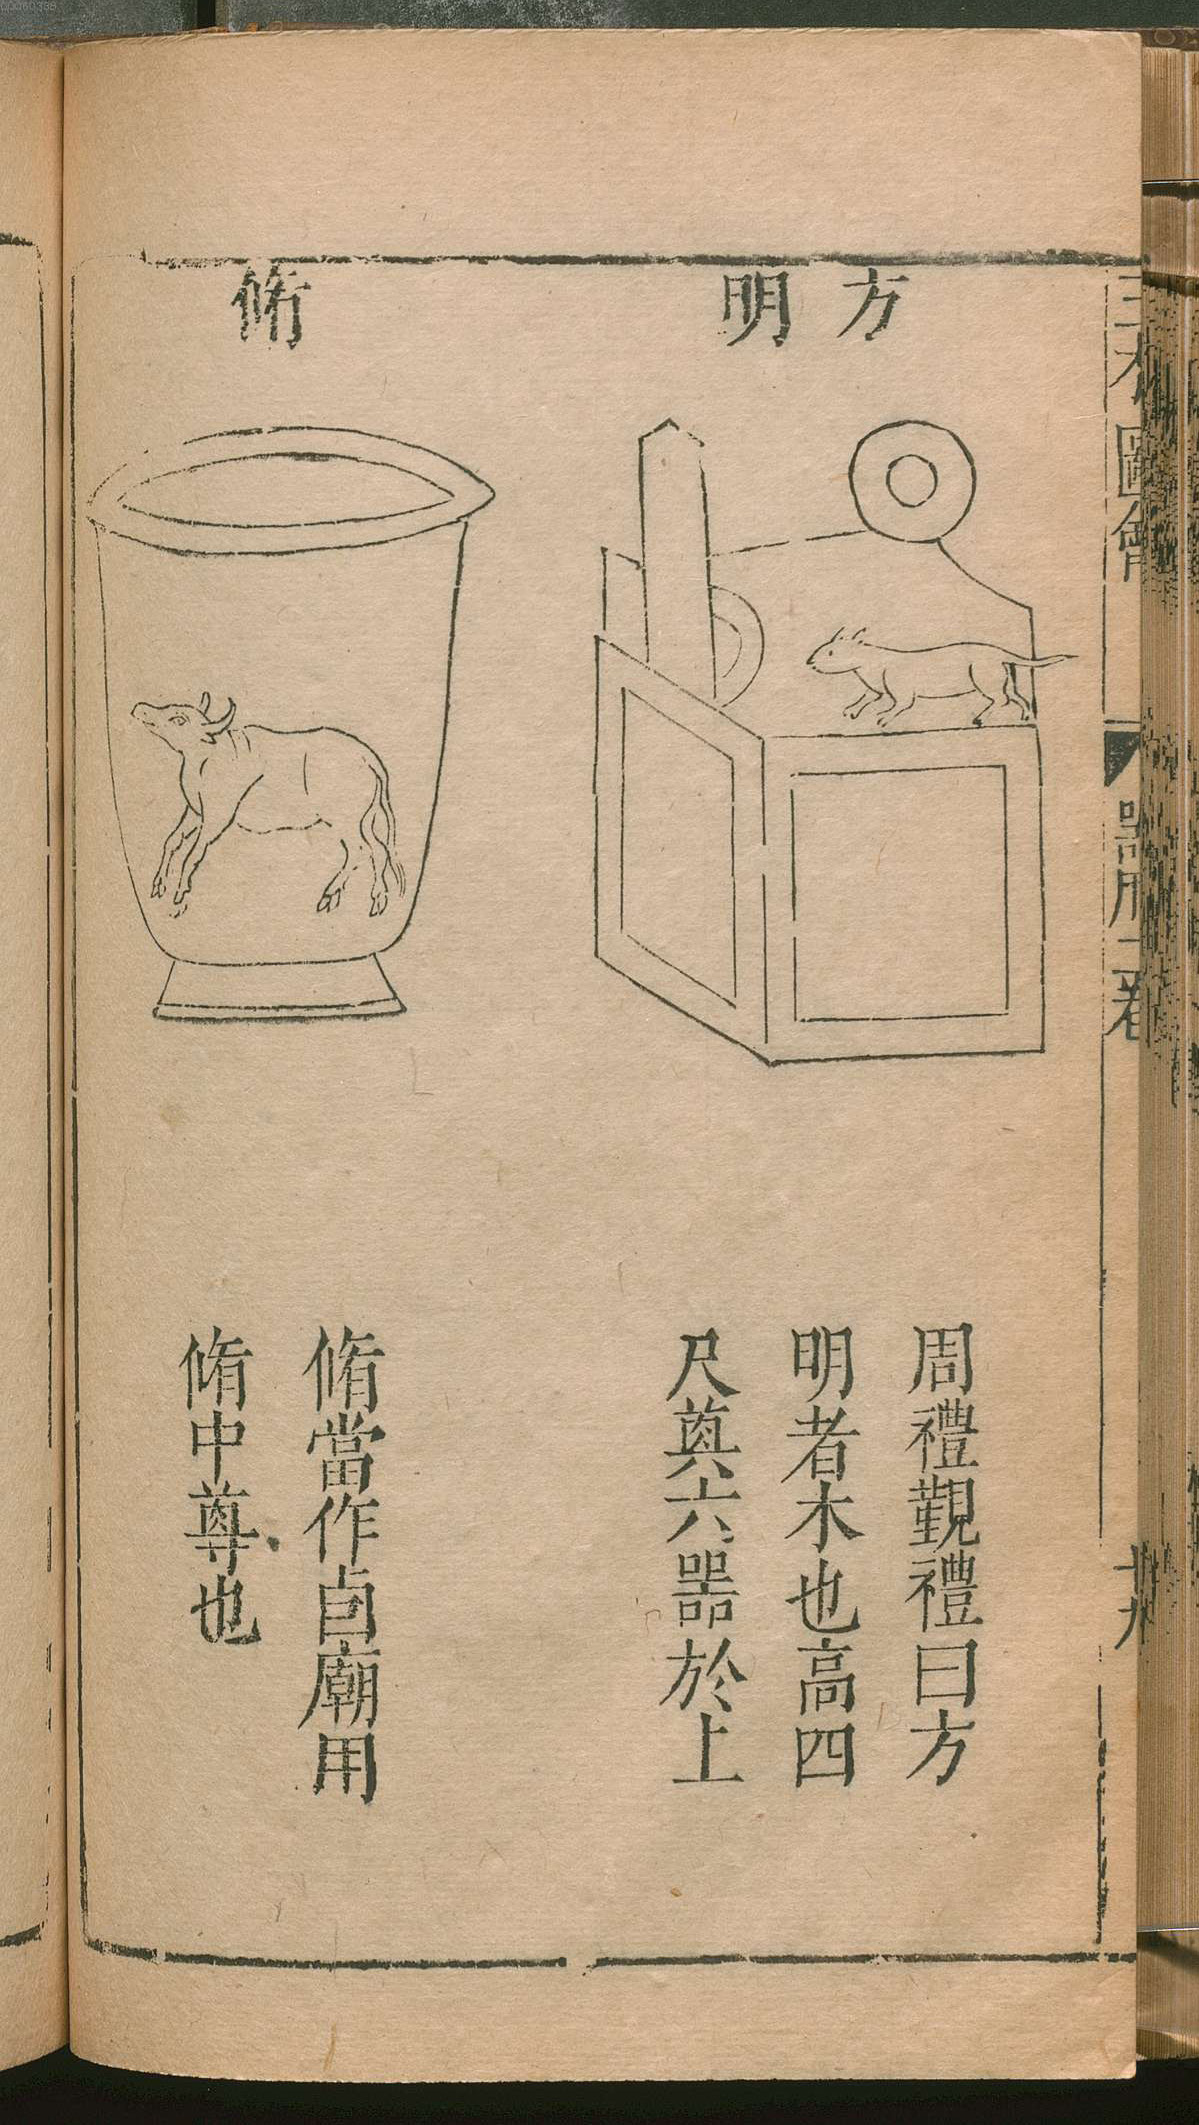 三才圖會
器用二卷
方明
周禮覲禮曰方
明者木也高四
尺奠六器於上
脩
脩當作卣廟用
脩中尊也